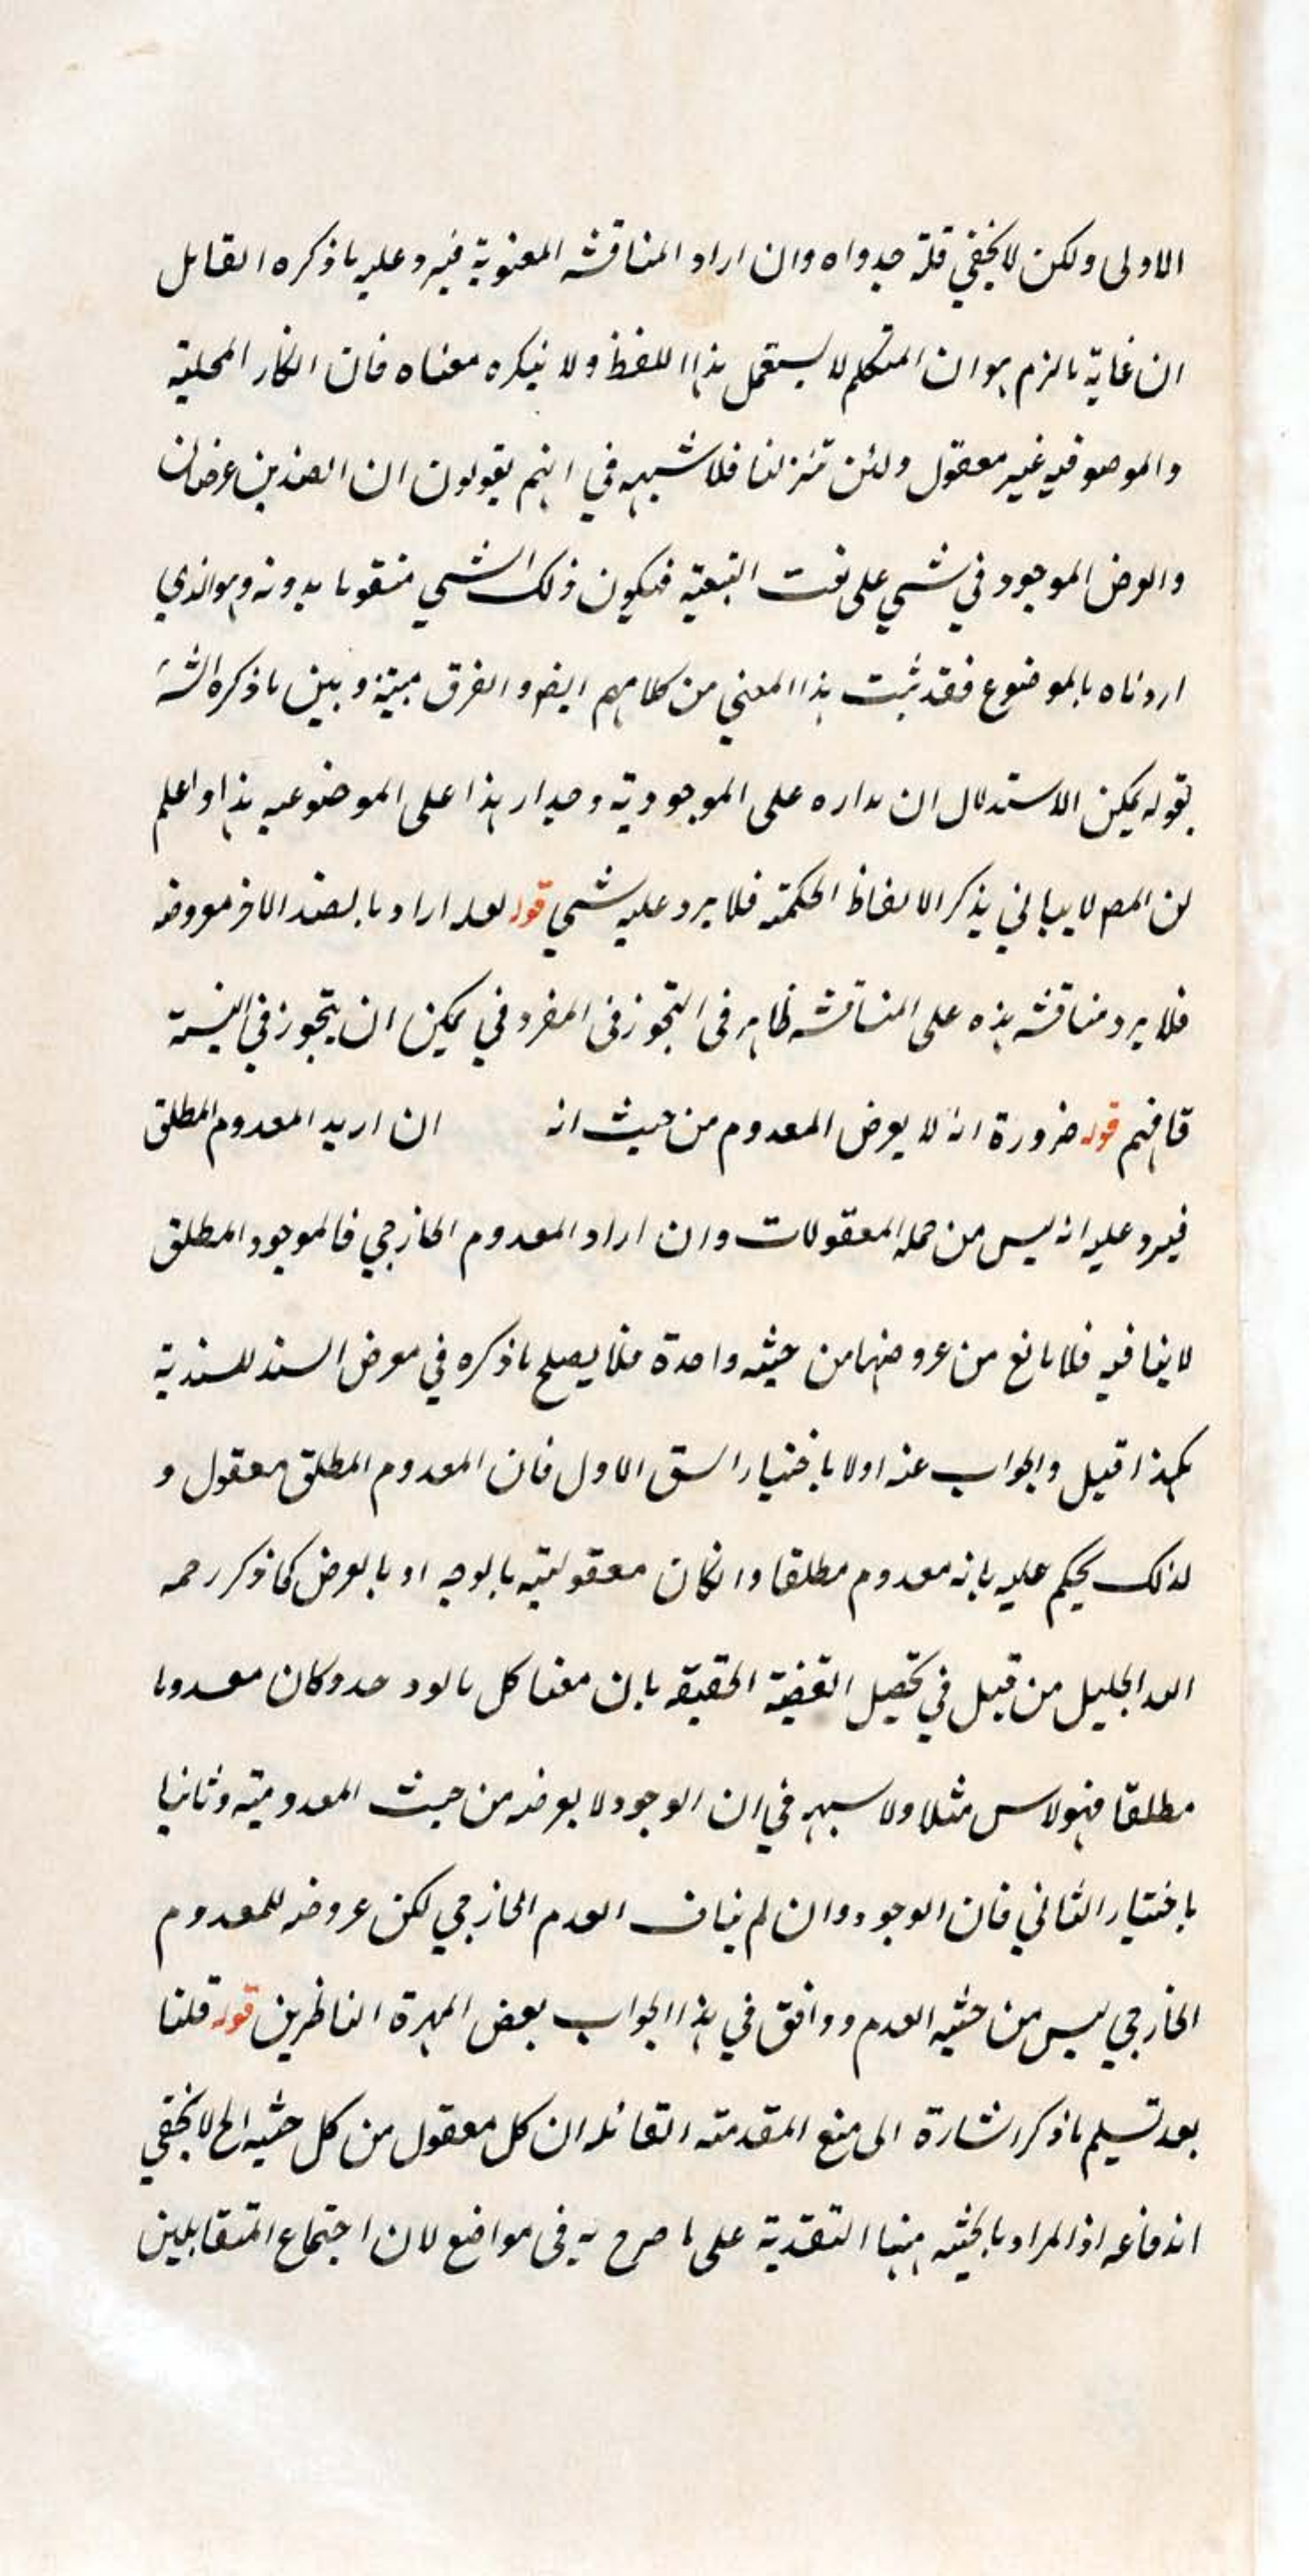 الاولى ولكن لا يخفي قلة جدواه وان اراد المناقشه المعنوية فيرد عليه ما ذكره القايل
ان غاية ما لزم هو ان المتكلم لا يستعمل هذا اللفظ ولا ينكره معناه فان انكار المحلية
والموصوفيه غير معقول ولئن تنزلنا فلا شبهه في انهم يقولون ان الضدين عرضان
والعرض الموجود في شي على نعت التبعيه فيكون ذلك الشي متقوما بدونه وهو الذي
اردناه بالموضوع فقد ثبت هذا المعني من كلامهم ايضا والفرق بينه وبين ما ذكره الشه
بقوله يمكن الاستدلال ان مداره على الموجودية ومدار هذا على الموضوعيه هذا واعلم
ان المص لا يبالي بذكر الالفاظ الحكمته فلا يرد عليه شي قوله لعله اراد بالضد الاخر معروضه
فلا يرد مناقشه هذه على المناقشه ظاهر فى التجوز فى المفرد في يمكن ان يتجوز في النسبة
فافهم قوله ضرورة انه لا يعرض المعدوم من حيث انه ان اريد المعدوم المطلق
فيرد عليه انه ليس من جمله المعقولات وان اراد المعدوم الخارجي فالموجود المطلق
لا ينافيه فلا مانع من عروضهما من حيثيه واحدة فلا يصلح ما ذكره في معرض السند للسندية
هكذا قيل والجواب عنه اولا باختيار الشق الاول فان المعدوم المطلق معقول و
لذلك يحكم عليه بانه معدوم مطلقا وانكان معقوليته بالوجه او بالعرض كما ذكر رحمه
الله الجليل من قبل في تحصيل القضية الحقيقه بان معنا كل ما لو وجد وكان معدوما
مطلقا فهو لاس مثلا ولا سبهه في ان الوجود لا يعرضه من حيث المعدومية وثانيا
باختيار الثاني فان الوجود وان لم يناف العدم الخارجي لكن عروضه للمعدوم
الخارجي ليس من حيثيه العدم ووافق في هذا الجواب بعض المهرة الناظرين قوله قلنا
بعد تسليم ما ذكر اشارة الى منع المقدمته القائله ان كل معقول من كل حيثيه الخ لا يخفي
اندفاعه اذ المراد بالحيثيه ههنا التقيدية على ما صرح به فى مواضع لان اجتماع المتقابلين